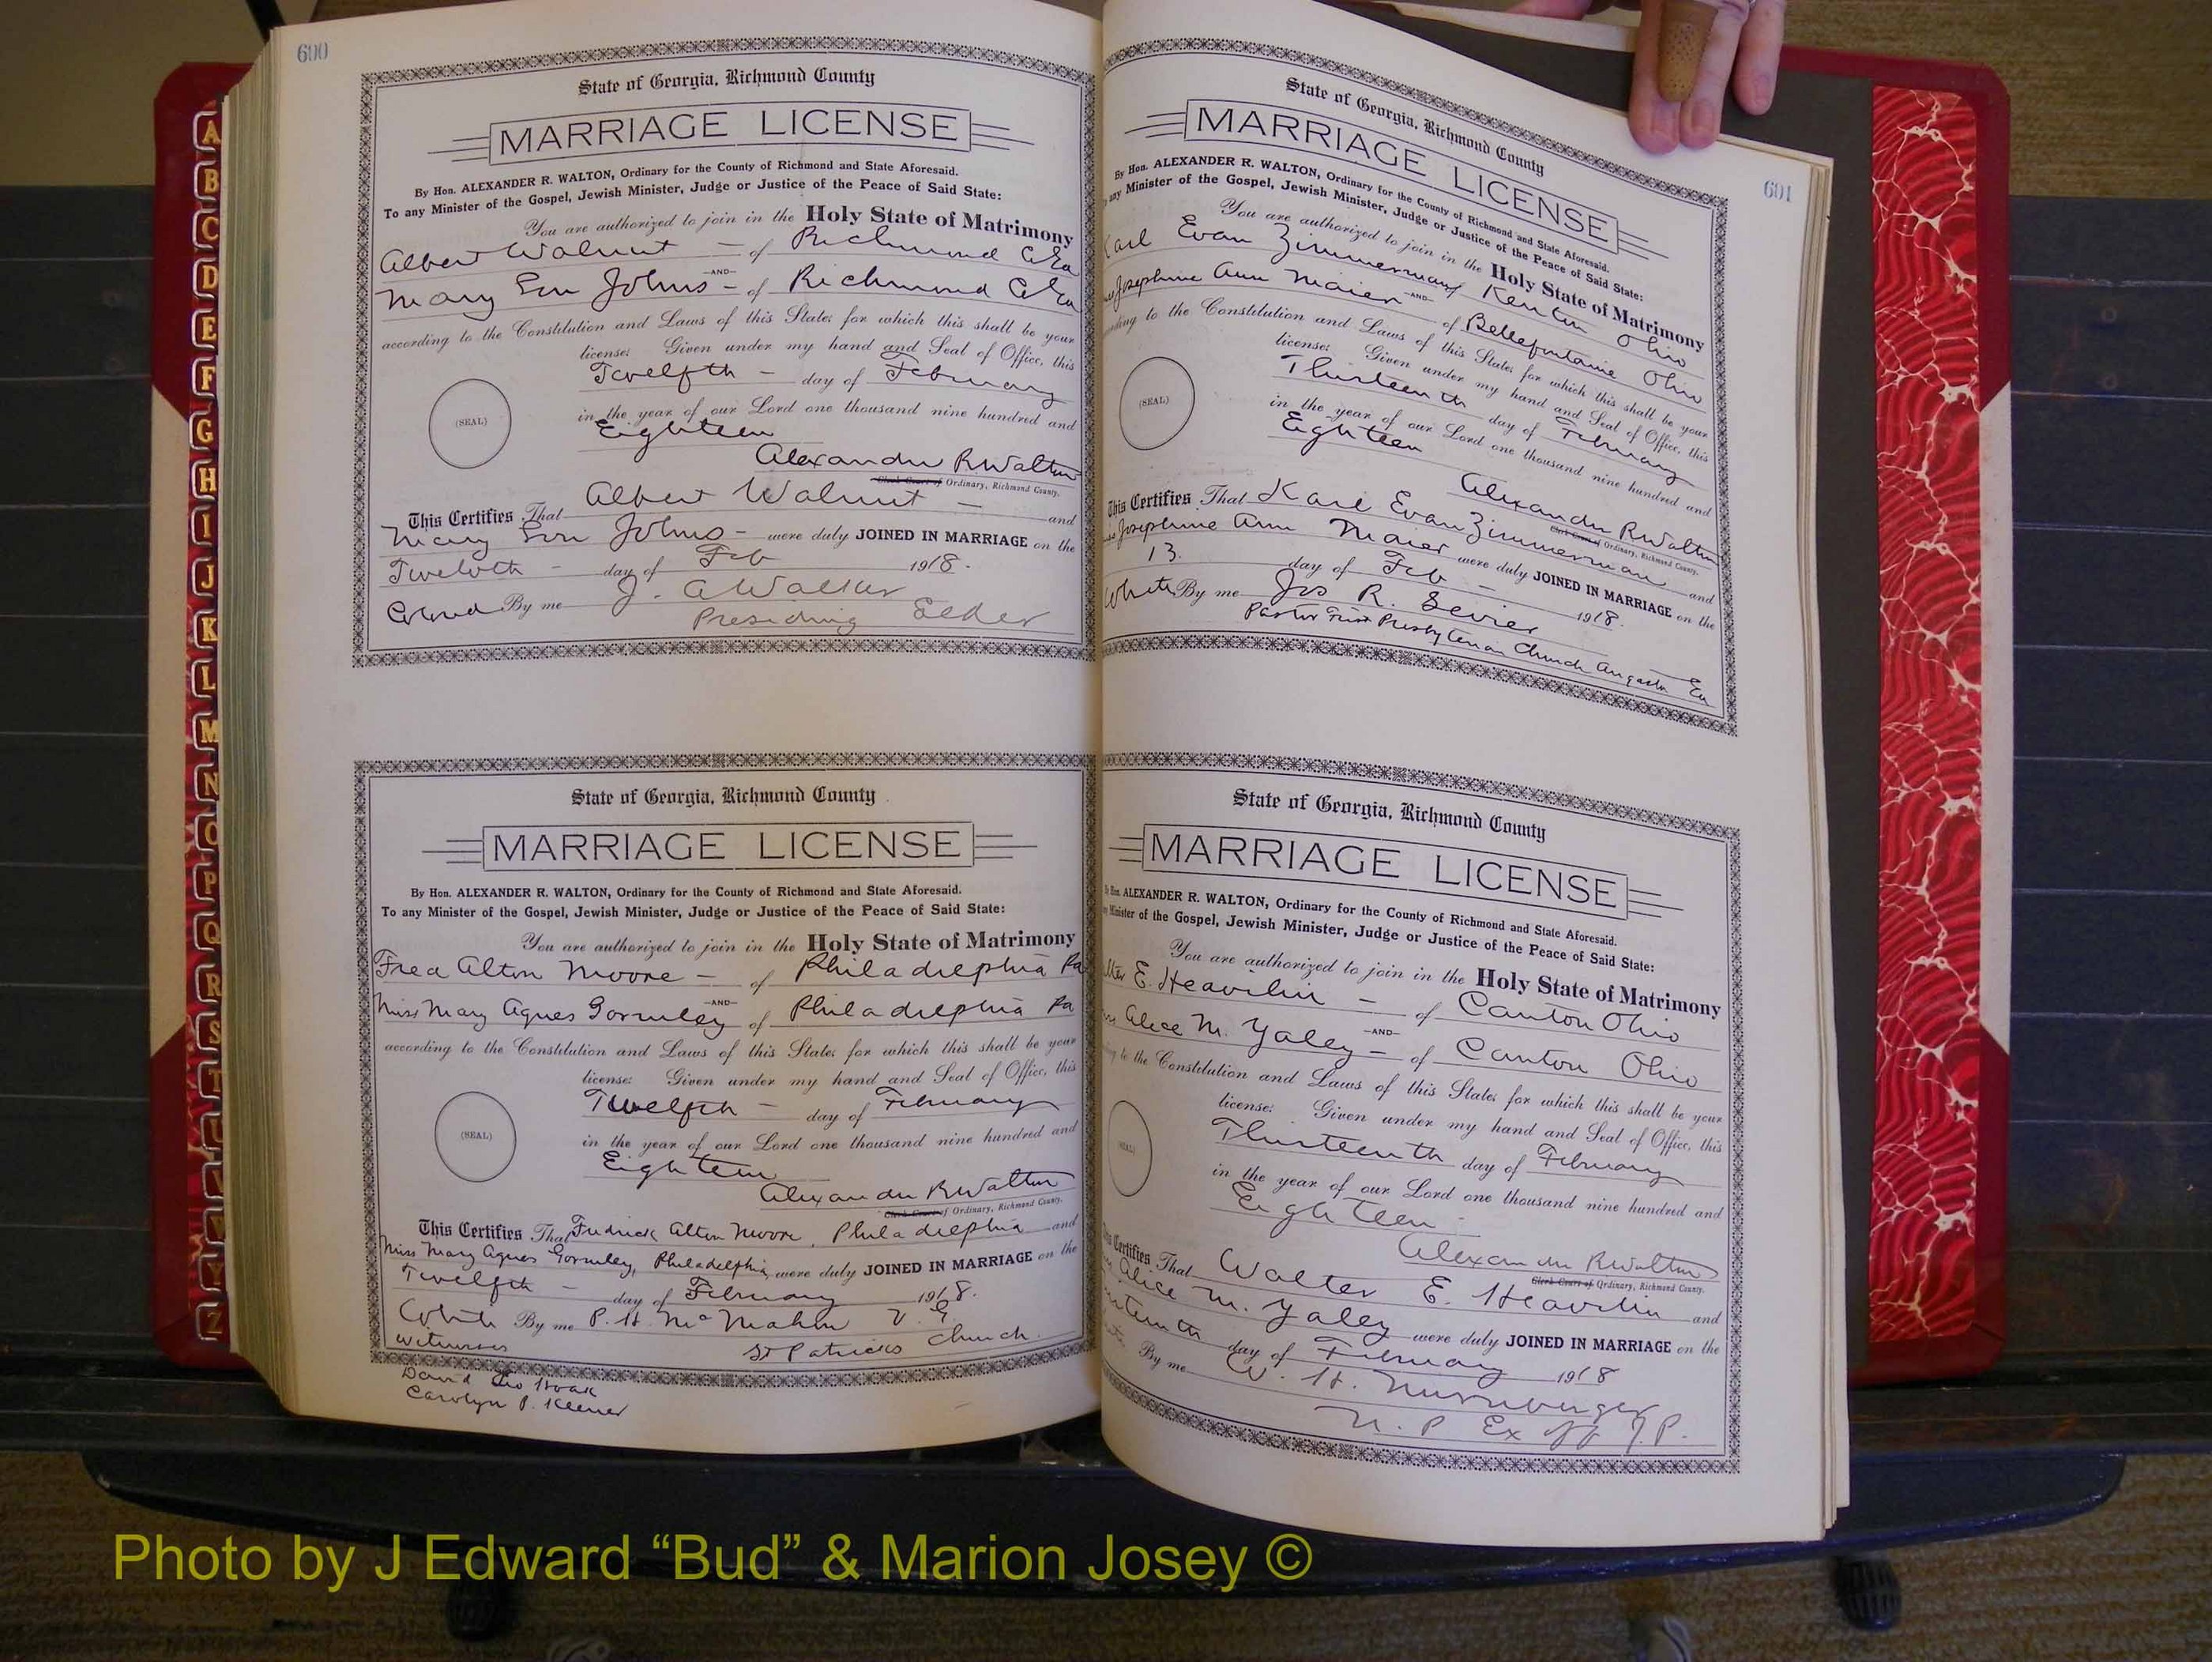 600
State of Georgia, Richmond County
MARRIAGE LICENSE
By Hon. ALEXANDER R. WALTON, Ordinary for the County of Richmond and State Aforesaid.
To any Minister of the Gospel, Jewish Minister, Judge or Justice of the Peace of Said State:
You are authorized to join in the Holy State of Matrimony
Albert Walnut — of Richmond Co Ga
—AND—
Mary Johns — of Richmond Co Ga
according to the Constitution and Laws of this State; for which this shall be your
license: Given under my hand and Seal of Office, this
Twelfth — day of February
(SEAL)
in the year of our Lord one thousand nine hundred and
Eighteen
Alexander R Walton
Clerk Court of Ordinary, Richmond County.
This Certifies That Albert Walnut — and
Mary Johns — were duly JOINED IN MARRIAGE on the
Twelvth — day of Feb 1918.
Colored By me J. A Walker
Presiding Elder
State of Georgia, Richmond County
MARRIAGE LICENSE
By Hon. ALEXANDER R. WALTON, Ordinary for the County of Richmond and State Aforesaid.
To any Minister of the Gospel, Jewish Minister, Judge or Justice of the Peace of Said State:
You are authorized to join in the Holy State of Matrimony
Fred Alton Moore — of Philadelphia Pa
—AND—
Miss Mary Agnes Gormley of Philadelphia Pa
according to the Constitution and Laws of this State; for which this shall be your
license: Given under my hand and Seal of Office, this
Twelfth — day of February
(SEAL)
in the year of our Lord one thousand nine hundred and
Eighteen
Alexander R Walton
Clerk Court of Ordinary, Richmond County.
This Certifies That Fredrick Alton Moore, Philadelphia and
Miss Mary Agnes Gormley, Philadelphia, were duly JOINED IN MARRIAGE on the
Twelfth — day of February 1918.
White By me P. H. McMahon V. G.
witnesses St Patricks Church.
David Geo
Carolyn P. Keener
601
State of Georgia, Richmond County
MARRIAGE LICENSE
By Hon. ALEXANDER R. WALTON, Ordinary for the County of Richmond and State Aforesaid.
any Minister of the Gospel, Jewish Minister, Judge or Justice of the Peace of Said State:
You are authorized to join in the Holy State of Matrimony
Karl Evan Zimmerman of Kenton Ohio
—AND—
Josephine Ann Maier of Bellefontaine Ohio
to the Constitution and Laws of this State; for which this shall be your
license: Given under my hand and Seal of Office, this
Thirteenth day of February
(SEAL)
in the year of our Lord one thousand nine hundred and
Eighteen
Alexander R Walton
Clerk Court of Ordinary, Richmond County.
This Certifies That Karl Evan Zimmerman and
Josephine Ann Maier were duly JOINED IN MARRIAGE on the
13. day of Feb — 1918.
White By me Jos R. Sevier
Pastor First Presbyterian Church Augusta Ga
State of Georgia, Richmond County
MARRIAGE LICENSE
By Hon. ALEXANDER R. WALTON, Ordinary for the County of Richmond and State Aforesaid.
Minister of the Gospel, Jewish Minister, Judge or Justice of the Peace of Said State:
You are authorized to join in the Holy State of Matrimony
E. Heavilin — of Canton Ohio
—AND—
Alice M. Yaley — of Canton Ohio
to the Constitution and Laws of this State; for which this shall be your
license: Given under my hand and Seal of Office, this
Thirteenth day of February
(SEAL)
in the year of our Lord one thousand nine hundred and
Eighteen
Alexander R Walton
Clerk Court of Ordinary, Richmond County.
Certifies That Walter E. Heavilin and
Alice M. Yaley were duly JOINED IN MARRIAGE on the
day of February 1918
By me W. H. Nurnberger
N. P Ex off J. P.
A
B
C
D
E
F
G
H
I
J
K
L
M
N
O
P
Q
R
S
T
U
V
W
Y
Z
Photo by J Edward “Bud” & Marion Josey ©